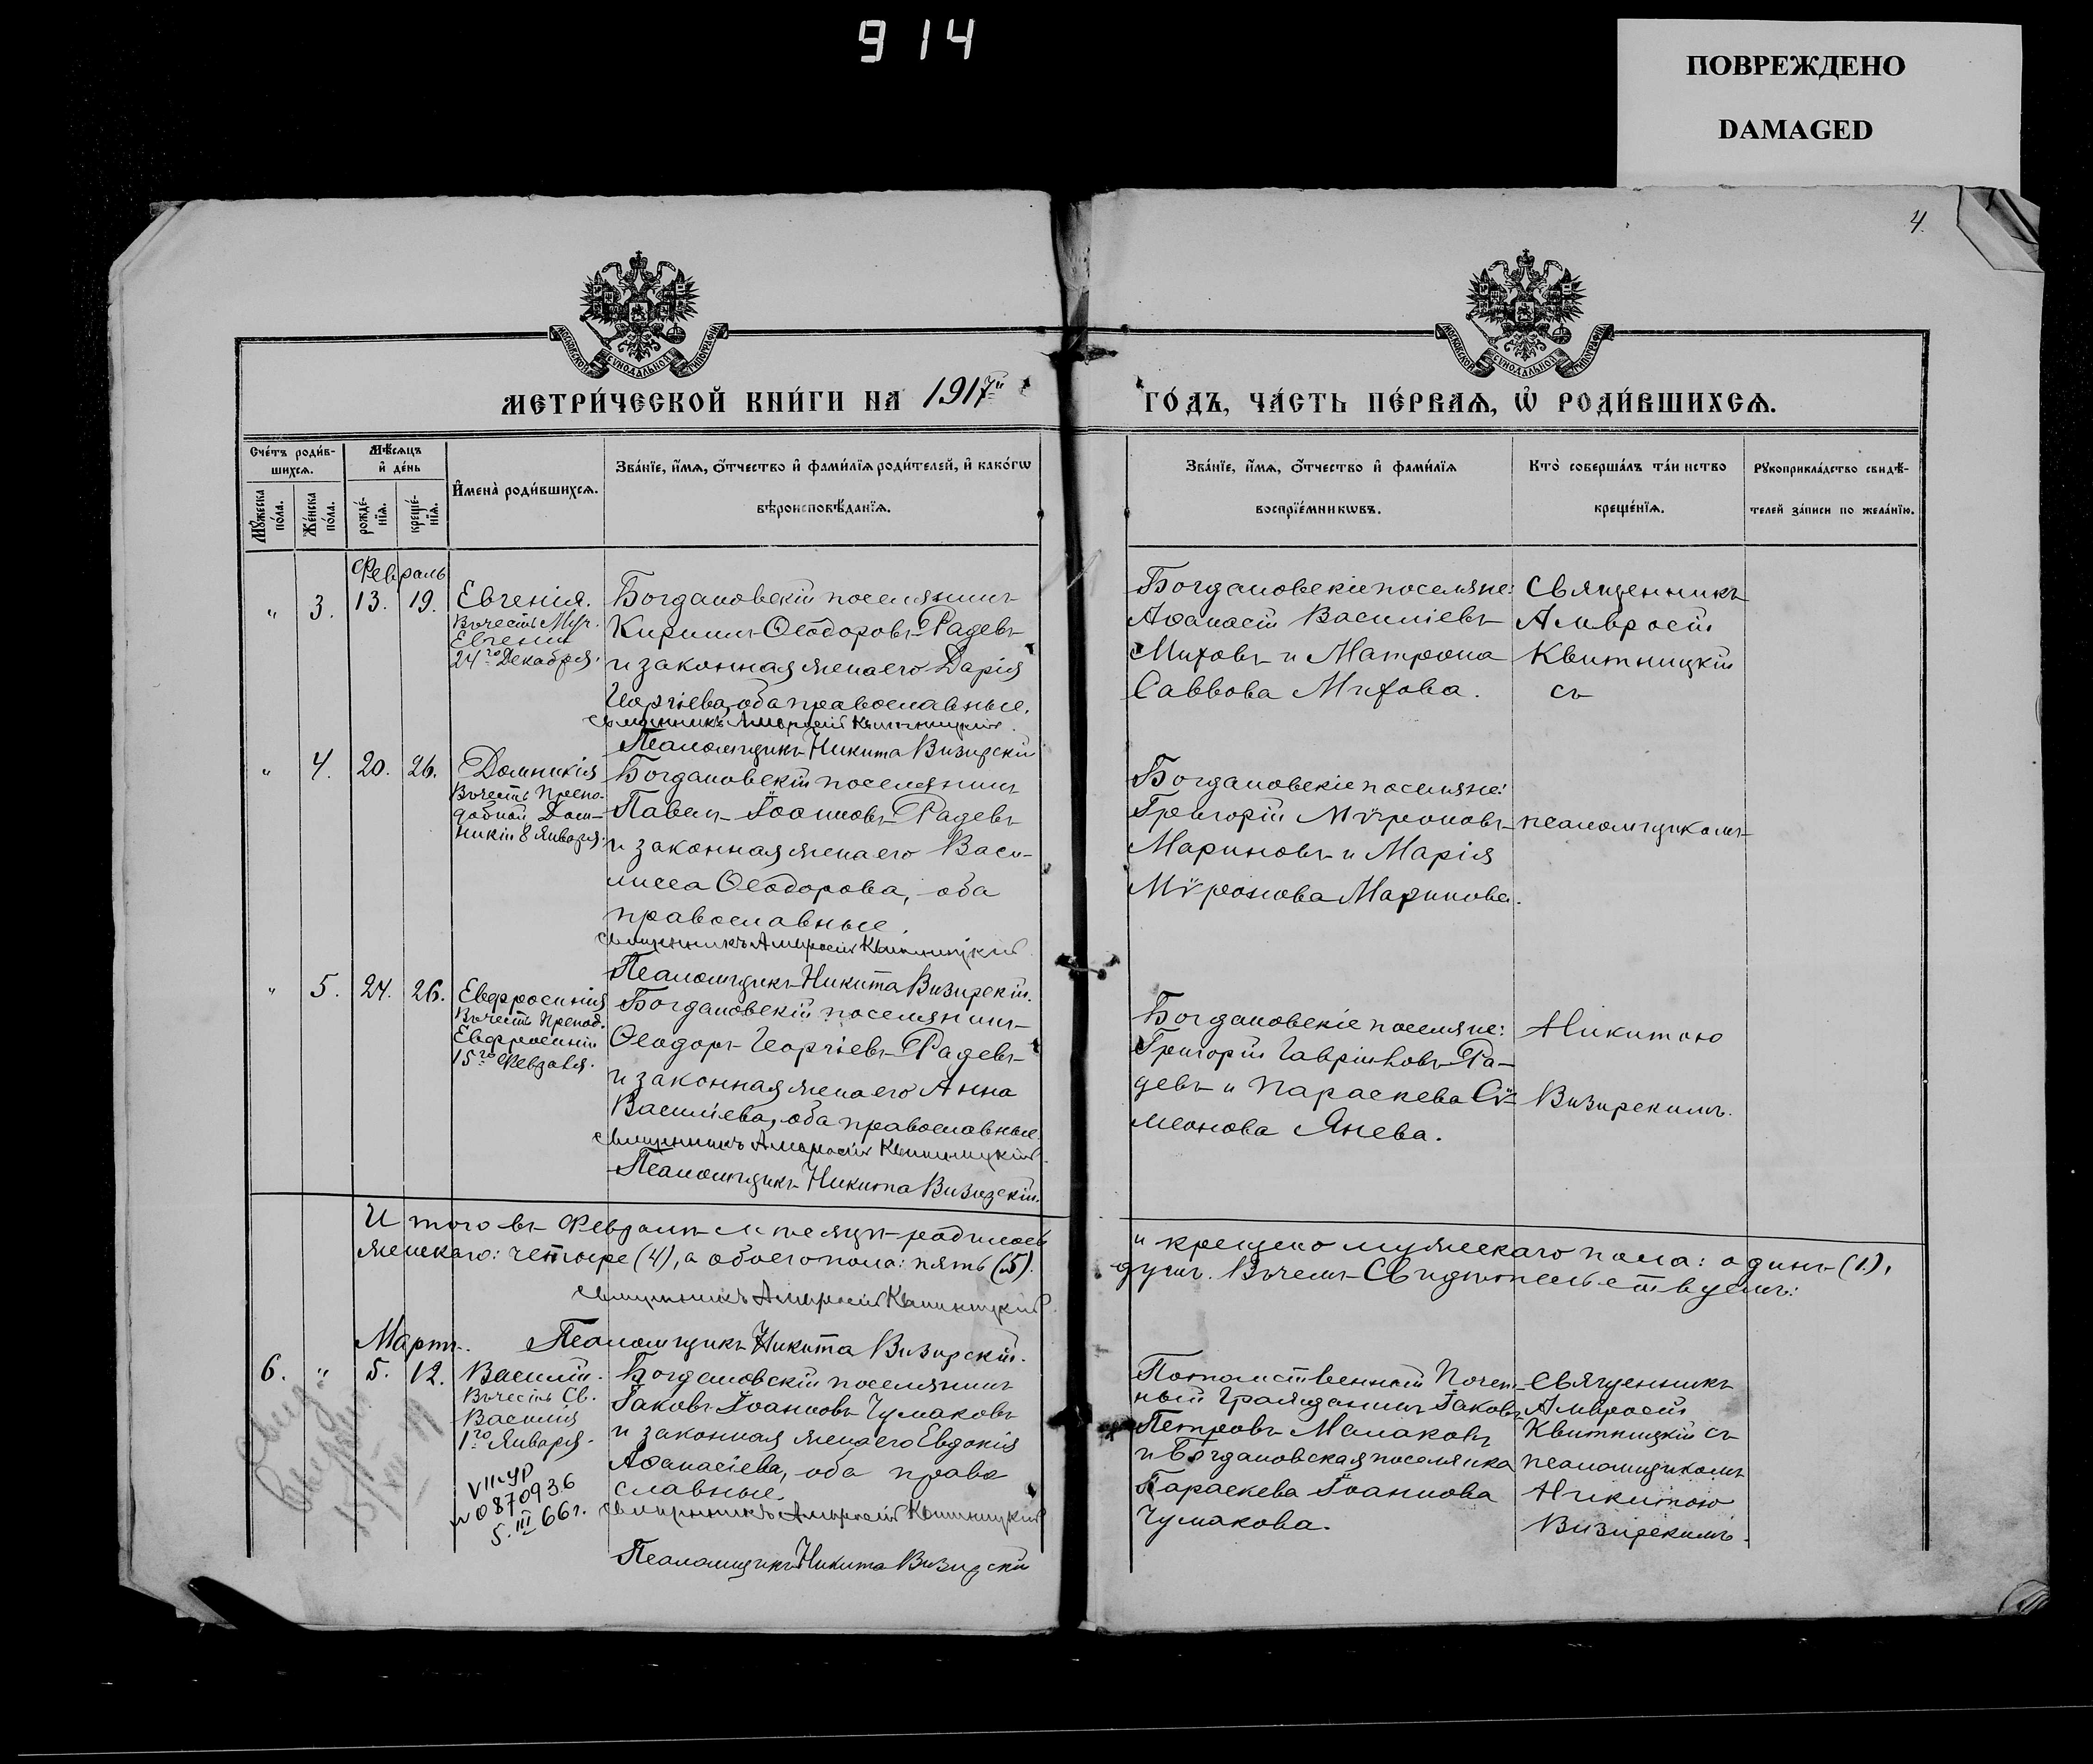 914
ПОВРЕЖДЕНО
DAMAGED
4.
МОСКОВСКОЙ СУНОДАЛЬНОЙ ТИПОГРАФІИ
МОСКОВСКОЙ СУНОДАЛЬНОЙ ТИПОГРАФІИ
МЕТРИ́ЧЕСКОЙ КНИ́ГИ НА 1917й
ГО́ДЪ, ЧА́СТЬ ПЕ́РВАЯ, Ѡ҆ РОДИ́ВШИХСЯ.
Сче́тъ роди́в-
шихся.
Мꙋ́жеска по́ла.
Же́нска по́ла.
Мѣ́сяцъ
и҆ де́нь
рожде́-
нїя.
креще́-
нїя.
И҆мена̀ роди́вшихся.
Зва́нїе, и҆́мя, ѻ҆́тчество и҆ фами́лїя роди́телей, и҆ како́гѡ
вѣроисповѣ́данїя.
Зва́нїе, и҆́мя, ѻ҆́тчество и҆ фами́лїя
воспрїе́мникѡвъ.
Кто̀ соверша́лъ та́инство
креще́нїя.
Рꙋкоприкла́дство свидѣ́-
телей за́писи по жела́нїю.
Февраль
" 3. 13. 19. Евгенія.
Въ честь Муч.
Евгеніи
24го Декабря.
Богдановскій поселянинъ
Кириллъ Ѳеодоровъ Радевъ
и законная жена его Дарія
Георгіева, оба православные.
Священникъ Амвросій Квитницкій.
Псаломщикъ Никита Визирскій
Богдановскіе поселяне:
Аѳанасій Васильевъ
Митовъ и Матрона
Саввова Митова.
Священникъ
Амвросій
Квитницкій
съ
" 4. 20. 26. Домникія
Въ честь Препо-
добной Дом-
никіи 8 Января.
Богдановскій поселянинъ
Павелъ Іоанновъ Радевъ
и законная жена его Васи-
лисса Ѳеодорова, оба
православные.
Священникъ Амвросій Квитницкій
Псаломщикъ Никита Визирскій.
Богдановскіе поселяне:
Григорій Мѵроновъ
Мариновъ и Марія
Мѵронова Маринова.
псаломщикомъ
" 5. 24. 26. Евфросинія
Въ честь Препод.
Евфросиніи
15го Февраля.
Богдановскій поселянинъ
Ѳеодоръ Георгіевъ Радевъ
и законная жена его Анна
Васильева, оба православные.
Священникъ Амвросій Квитницкій.
Псаломщикъ Никита Визирскій.
Богдановскіе поселяне:
Григорій Гавріиловъ Ра-
девъ и Параскева Сѵ-
меонова Янева.
Никитою
Визирскимъ.
Итого въ Февралѣ мѣсяцѣ родилось
женскаго: четыре (4), а обоего пола: пять (5).
и крещено мужескаго пола: одинъ (1),
душъ. Въ чемъ свидѣтельствуемъ:
Священникъ Амвросій Квитницкій.
Псаломщикъ Никита Визирскій.
Мартъ.
6. " 5. 12. Василій.
Въ честь Св.
Василія
1го Января.
VII-УР
№ 0870936
5.III 66 г.
Богдановскій поселянинъ
Іаковъ Іоанновъ Чумаковъ
и законная жена его Евдокія
Аѳанасіева, оба право
славные.
Священникъ Амвросій Квитницкій
Псаломщикъ Никита Визирскій
Потомственный Почет-
ный Гражданинъ Іаковъ
Петровъ Малаковъ
и Богдановская поселянка
Параскева Іоаннова
Чумакова.
Священникъ
Амвросій
Квитницкій съ
псаломщикомъ
Никитою
Визирскимъ.